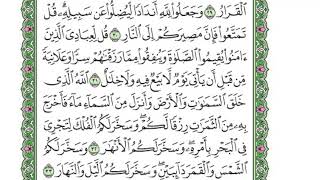 ٱلْقَرَارُ ٢٩ وَجَعَلُوا۟ لِلَّهِ أَندَادًا لِّيُضِلُّوا۟ عَن سَبِيلِهِۦ ۗ قُلْ
تَمَتَّعُوا۟ فَإِنَّ مَصِيرَكُمْ إِلَى ٱلنَّارِ ٣٠ قُل لِّعِبَادِىَ ٱلَّذِينَ
ءَامَنُوا۟ يُقِيمُوا۟ ٱلصَّلَوٰةَ وَيُنفِقُوا۟ مِمَّا رَزَقْنَٰهُمْ سِرًّا وَعَلَانِيَةً
مِّن قَبْلِ أَن يَأْتِىَ يَوْمٌ لَّا بَيْعٌ فِيهِ وَلَا خِلَٰلٌ ٣١ ٱللَّهُ ٱلَّذِى
خَلَقَ ٱلسَّمَٰوَٰتِ وَٱلْأَرْضَ وَأَنزَلَ مِنَ ٱلسَّمَآءِ مَآءً فَأَخْرَجَ
بِهِۦ مِنَ ٱلثَّمَرَٰتِ رِزْقًا لَّكُمْ ۖ وَسَخَّرَ لَكُمُ ٱلْفُلْكَ لِتَجْرِىَ
فِى ٱلْبَحْرِ بِأَمْرِهِۦ ۖ وَسَخَّرَ لَكُمُ ٱلْأَنْهَٰرَ ٣٢ وَسَخَّرَ لَكُمُ
ٱلشَّمْسَ وَٱلْقَمَرَ دَآئِبَيْنِ ۖ وَسَخَّرَ لَكُمُ ٱلَّيْلَ وَٱلنَّهَارَ ٣٣